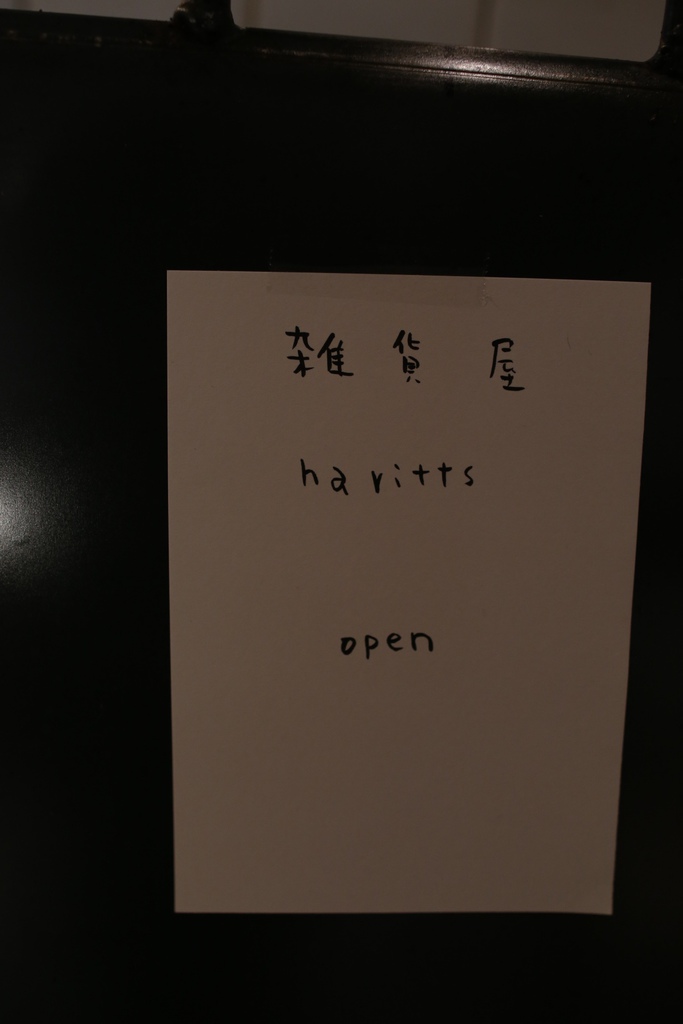 雑貨屋
haritts
open